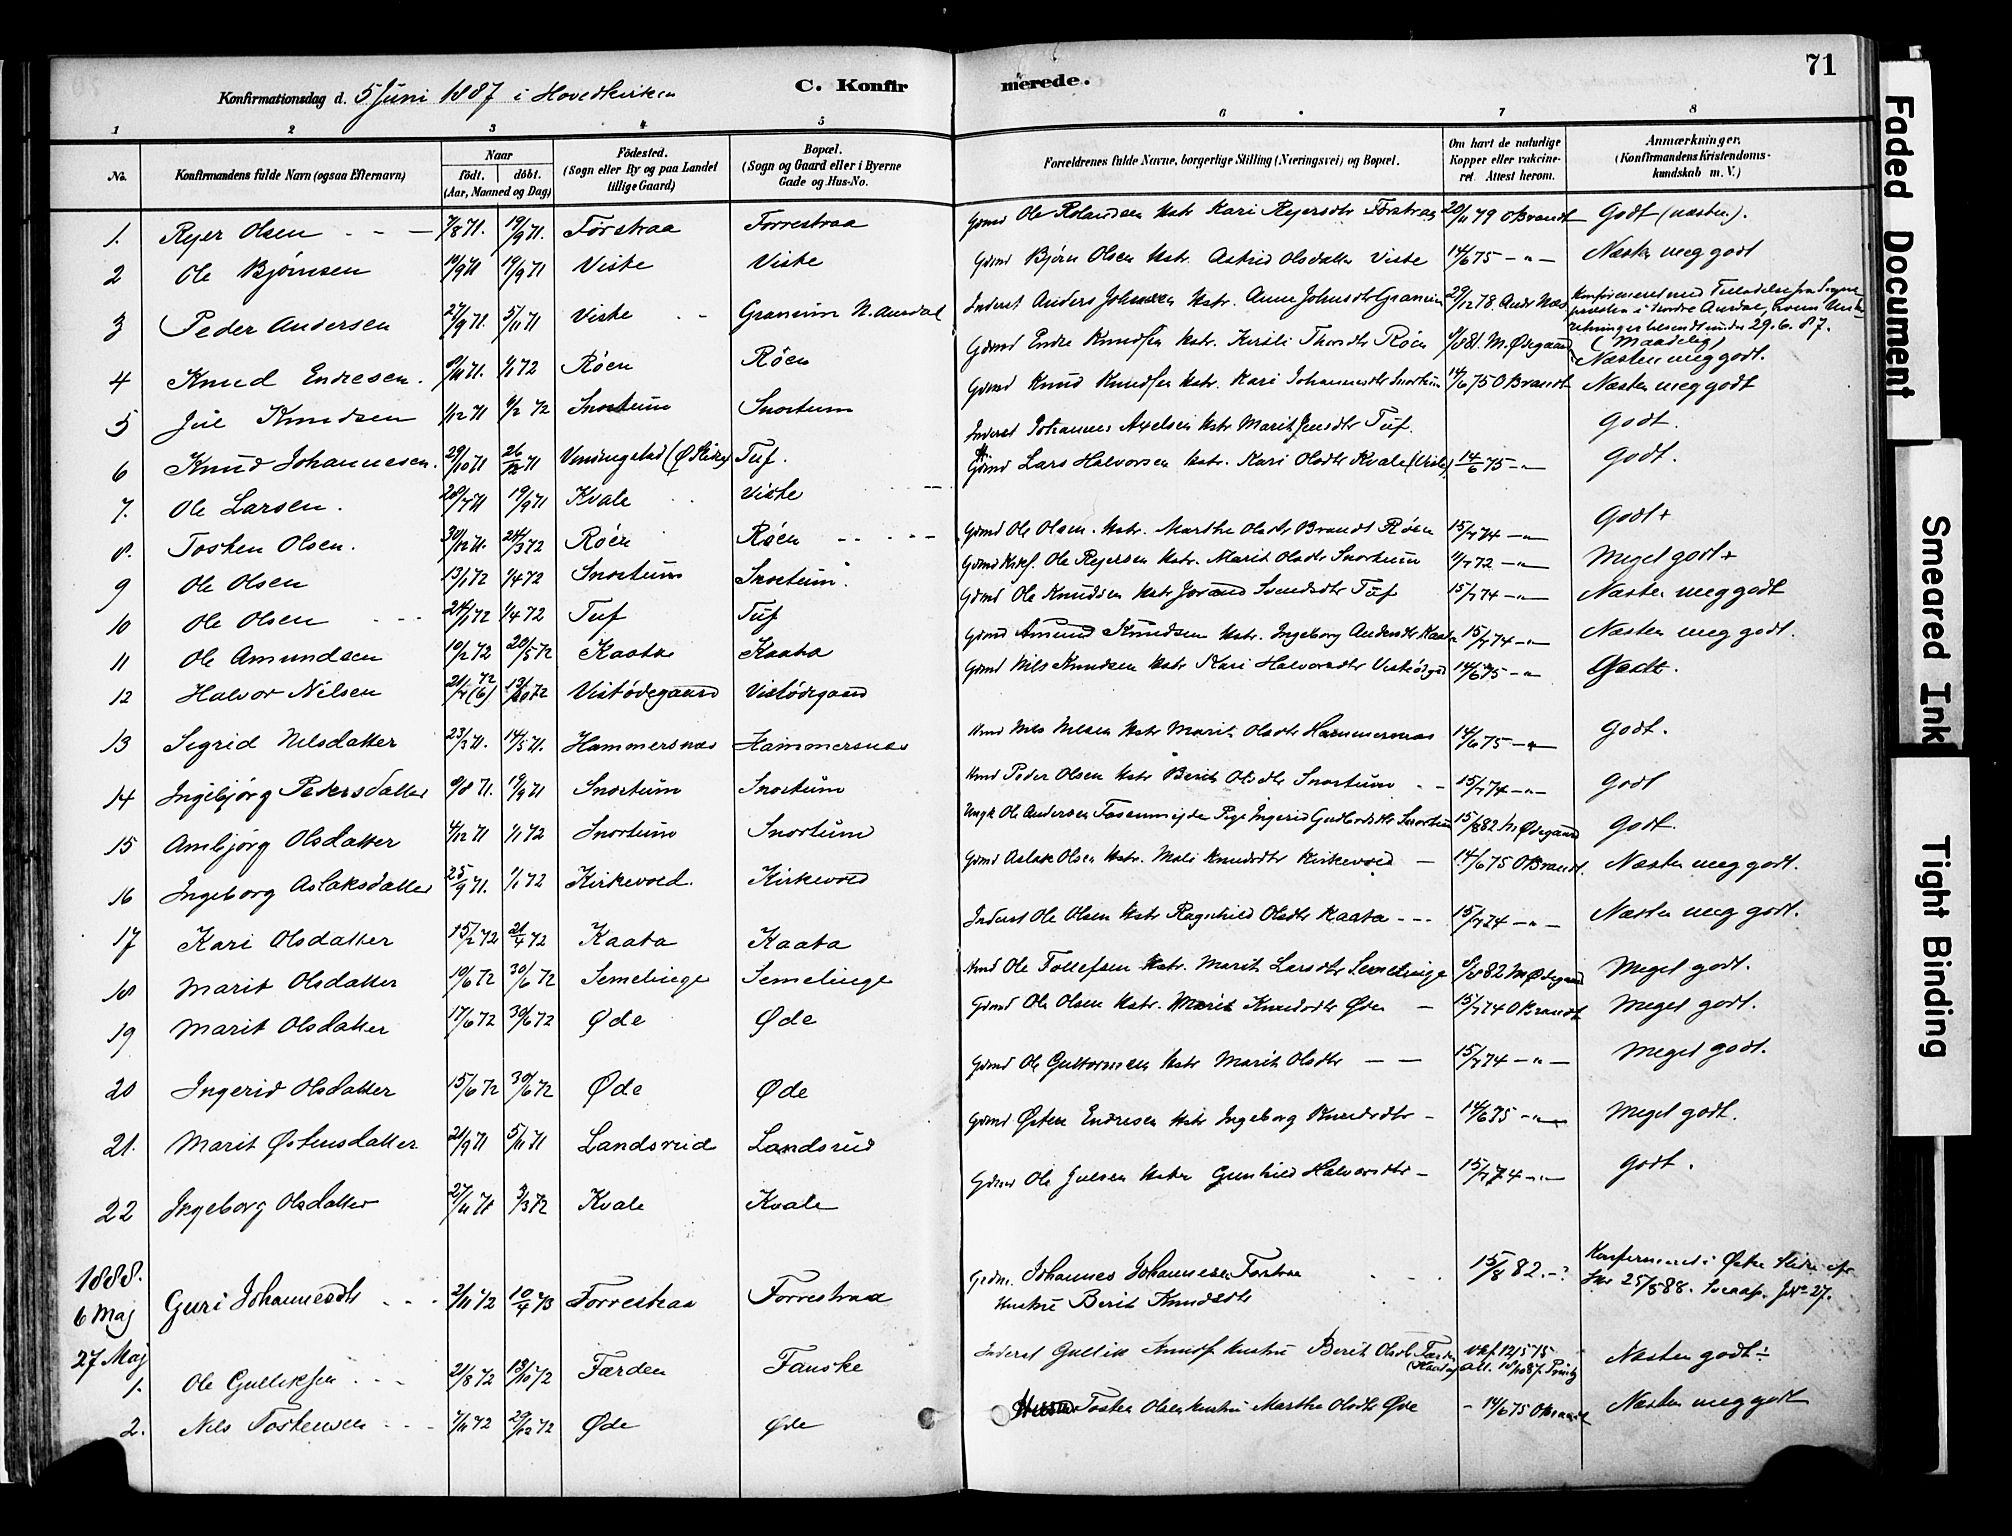 71
C. Konfirmerede.
Konfirmationsdag d. 5 Juni 1887 i Hovedkirken
1 2 3 4 5 6 7 8
No. Konfirmandens fulde Navn (ogsaa Efternavn) Naar født. døbt. (Aar, Maaned og Dag) Fødested. (Sogn eller By og paa Landet tillige Gaard) Bopæl. (Sogn og Gaard eller i Byerne Gade og Hus-No. Forældrenes fulde Navne, borgerlige Stilling (Næringsvei) og Bopæl. Om havt de naturlige Kopper eller vakcineret. Attest herom. Anmærkninger. (Konfirmandens Kristendomskundskab m. V.)
1. Rejer Olsen 7/8 71. 19/9 71. Førstraa Forrestraa Gdmd Ole Rolandsen Hstr Kari Rejersdtr Førstraa 20/11 79 O Brandt Godt (næsten).
2 Ole Bjørnsen 10/9 71 19/9 71 Viste Viste Gdmd Bjørn Olsen Hstr. Astrid Olsdatter Viste 14/6 75 -"- Næsten meg godt
3 Peder Andersen 27/9 71. 5/11 71 Viste Graneim N. Aurdal Inderst Anders Johnsen Hstr. Anne Johnsdtr Graneim 29/12 78. Konfirmeret med Tilladelse fra Sognepresten i Nordre Aurdal, 29.6.87. (Maadelig)
4 Knud Endresen. 8/11 71. 1/1 72 Røen Røen Gdmd Endre Knudsen Hstr. Kirsti Thorsdtr Røen M. Ødegaard Næsten meg godt.
5 Jul Knudsen 1/12 71 4/2 72 Snortum Snortum Gdmd Knud Knudsen Hstr. Kari Johannesdtr Snortum 14/6 75 O Brandt Næsten meg godt
6 Knud Johannesen. 29/10 71 26/12 71 (Ø Slidre) Tuf. Inderst Johannes Axelsen Hstr Marit Jensdtr Tuf. Godt.
7. Ole Larsen. 28/7 71 19/9 71 Kvale Viste Gdmd Lars Halvorsen Hstr. Kari Olsdtr Kvale (Viste) 14/6 75 -"- Godt.
8. Tosten Olsen. 30/12 71. 24/3 72 Røen Røen Gdmd Ole Olsen. Hstr. Marthe Olsdtr Brandt Røen 15/7 74 -"- Godt+
9 Ole Olsen 13/1 72 1/4 72 Snortum Snortum. Ole Rejersen Hstr. Marit Olsdtr Snortum 11/7 72 -"- Meget godt+
10 Ole Olsen 24/1 72 1/4 72 Tuf Tuf Gdmd Ole Knudsen Hstr Jorand Svendsdtr Tuf 15/7 74 -"- Næsten meg godt
11 Ole Amundsen 10/2 72 20/5 72 Kaata Kaata Gdmd Amund Knudsen Hstr. Ingeborg Andersdtr Kaata 15/7 74 -"- Næsten meg godt.
12 Halvor Nilsen 21/7 72 (6) 13/10 72 Vistødegaard Vistødegaard Gdmd Nils Knudsen Hstr Kari Halvorsdtr Vistødgd 14/6 75 -"- Godt.
13 Sigrid Nilsdatter 23/3 71. 14/5 71. Hammersnæs Hammersnæs Hmd Nils Nilsen Hstr Marit Olsdtr Hammersnæs 14/6 75 -"- Godt.
14 Ingebjørg Pedersdatter 9/8 71. 19/9 71 Snortum Snortum Hmd Peder Olsen Hstr Berit Olsdtr Snortum 15/7 74 -"- Godt
15 Ambjørg Olsdatter 4/12 71 1/1 72 Snortum Snortum Ungk Ole Andersen Pige Ingerid Gudbrdsdtr Snortum 15/8 82 M Ødegaard Godt.
16 Ingeborg Aslaksdatter 25/9 71. 1/1 72 Kirkevold. Kirkevold Gdmd Aslak Olsen Hstr. Mali Knudsdtr Kirkevold 14/6 75 O Brandt. Næsten meg godt.
17 Kari Olsdatter 15/2 72 21/4 72 Kaata Kaata Inderst Ole Olsen Hstr Ragnhild Olsdtr Kaata 15/7 74 -"- Næsten meg godt.
18 Marit Olsdatter 10/6 72 30/6 72 Semelinge Semelinge Hmd Ole Tollefsen Hstr. Marit Larsdtr Semelinge 8/8 82 M Ødegaard Meget godt.
19 Marit Olsdatter 17/6 72 30/6 72 Øde Øde Gdmd Ole Olsen Hstr. Marit Knudsdtr Øde 15/7 74 O Brandt Meget godt.
20 Ingerid Olsdatter 15/6 72 30/6 72 Øde Øde Gdmd Ole Guttormsen Hstr Marit Olsdtr 15/7 74 -"- Meget godt.
21. Marit Østensdatter 21/9 71 5/11 71 Landsrud Landsrud Gdmd Østen Endresen Hstr Ingeborg Knudsdtr 14/6 75 -"- Meget godt.
22 Ingeborg Olsdatter 27/11 71 3/3 72 Kvale Kvale Gdmd Ole Julsen Hstr Gunhild Halvorsdtr 15/7 74 -"- Godt.
1888.
6 Maj Guri Johannesdtr 2/11 72 10/4 73 Forrestraa Forrestraa Gdm. Johannes Johannesen Forstraa Hustru Berit Knudsdtr 15/8 82. Konfirmeret i Østre Slidre 25/5 88. Jno 27.
27 Maj
1. Ole Gulliksen 21/8 72 13/10 72 Færden Fauske Inderst Gullik Hustru Berit Olsdtr Næsten godt÷
2. Nils Tostensen 7/11 72 29/12 72 Øde Øde Tosten Olsen Hustru Marthe Olsdtr Øde 14/6 75 O Brandt Næsten meg godt
Faded Document
Smeared Ink
Tight Binding